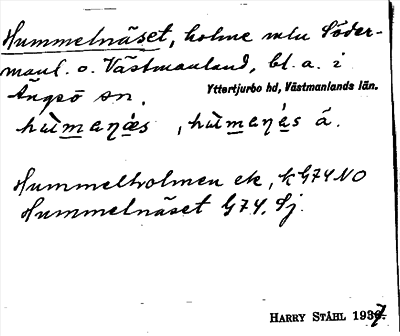 Hummelnäset, holme mln Söder-
manl. o. Västmanland, bl. a. i
Ängsö sn.
Yttertjurbo hd, Västmanlands län.
Hummelholmen ek, k G74 NO
Hummelnäset G74. Sj.
HARRY STÅHL 1937.